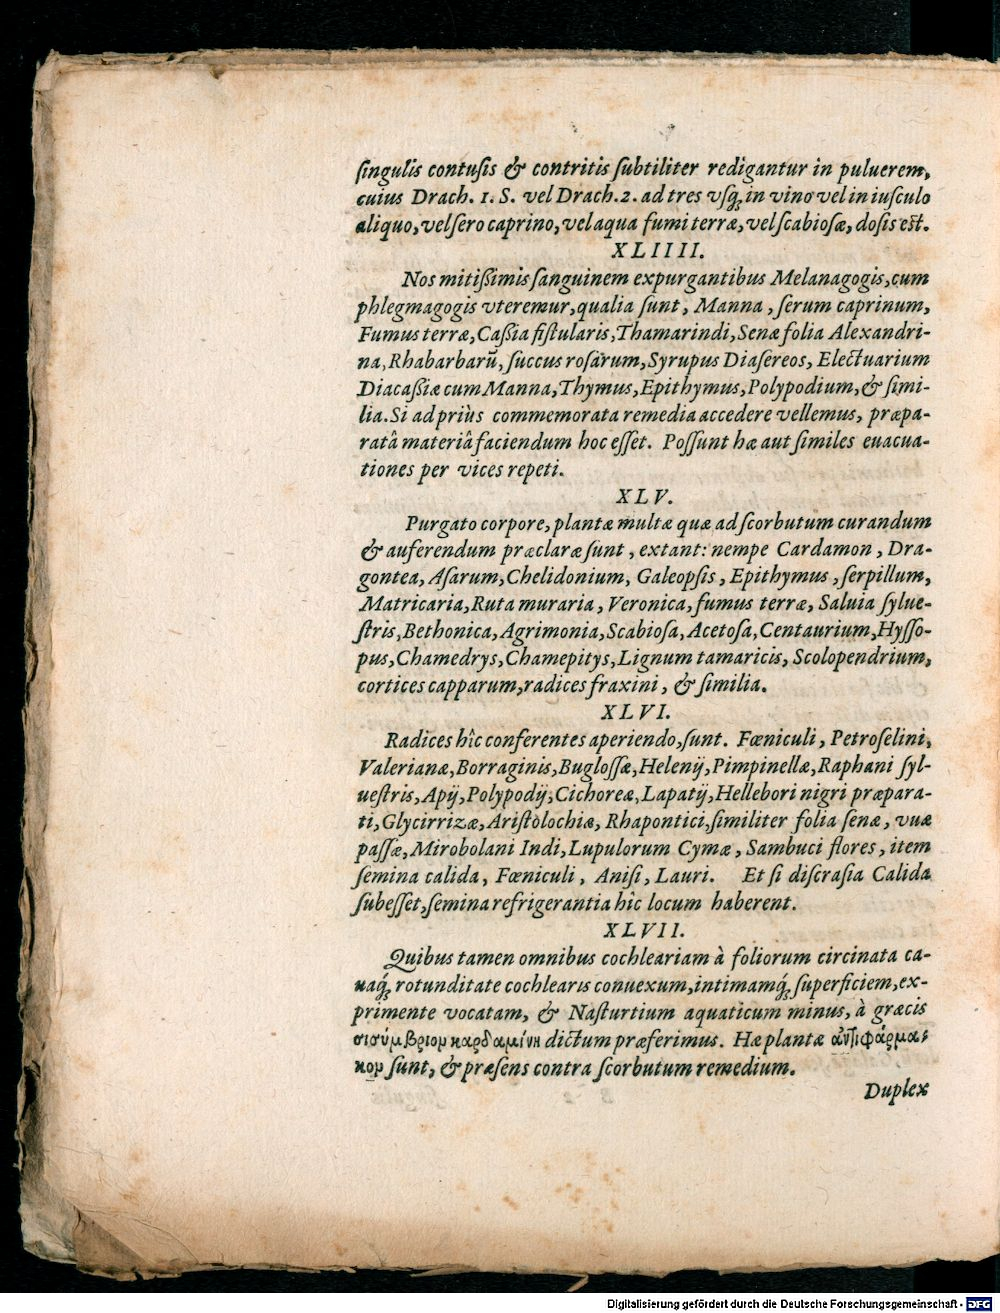 ſingulis contuſis & contritis ſubtiliter redigantur in puluerem,
cuius Drach. 1. S. vel Drach. 2. ad tres vſq; in vino vel in iuſculo
aliquo, vel ſero caprino, vel aqua fumi terræ, vel ſcabioſæ, doſis est.
XLIIII.
Nos mitißimis ſanguinem expurgantibus Melanagogis, cum
phlegmagogis vteremur, qualia ſunt, Manna, ſerum caprinum,
Fumus terræ, Caßia fiſtularis, Thamarindi, Senæ folia Alexandri-
na, Rhabarbarũ, ſuccus roſarum, Syrupus Diaſereos, Electuarium
Diacaßiæ cum Manna, Thymus, Epithymus, Polypodium, & ſimi-
lia. Si ad priùs commemorata remedia accedere vellemus, præpa-
ratâ materiâ faciendum hoc eſſet. Poſſunt hæ aut ſimiles euacua-
tiones per vices repeti.
XLV.
Purgato corpore, plantæ multæ quæ ad ſcorbutum curandum
& auferendum præclaræ ſunt, extant: nempe Cardamon, Dra-
gontea, Aſarum, Chelidonium, Galeopſis, Epithymus, ſerpillum,
Matricaria, Ruta muraria, Veronica, fumus terræ, Saluia ſylue-
ſtris, Bethonica, Agrimonia, Scabioſa, Acetoſa, Centaurium, Hyſſo-
pus, Chamedrys, Chamepitys, Lignum tamaricis, Scolopendrium,
cortices capparum, radices fraxini, & ſimilia.
XLVI.
Radices hîc conferentes aperiendo, ſunt. Fœniculi, Petroſelini,
Valerianæ, Borraginis, Bugloſſæ, Helenij, Pimpinellæ, Raphani ſyl-
ueſtris, Apij, Polypodij, Cichoreæ, Lapatij, Hellebori nigri præpara-
ti, Glycirrizæ, Ariſtolochiæ, Rhapontici, ſimiliter folia ſenæ, vuæ
paſſæ, Mirobolani Indi, Lupulorum Cymæ, Sambuci flores, item
ſemina calida, Fœniculi, Aniſi, Lauri. Et ſi diſcraſia Calida
ſubeſſet, ſemina refrigerantia hîc locum haberent.
XLVII.
Quibus tamen omnibus cochleariam à foliorum circinata ca-
uaq́; rotunditate cochlearis conuexum, intimamq́; ſuperficiem, ex-
primente vocatam, & Naſturtium aquaticum minus, à græcis
σισύμβριον καρδαμίνη dictum præferimus. Hæ plantæ ἀντιφάρμα-
κον ſunt, & præſens contra ſcorbutum remedium.
Duplex
Digitalisierung gefördert durch die Deutsche Forschungsgemeinschaft - DFG